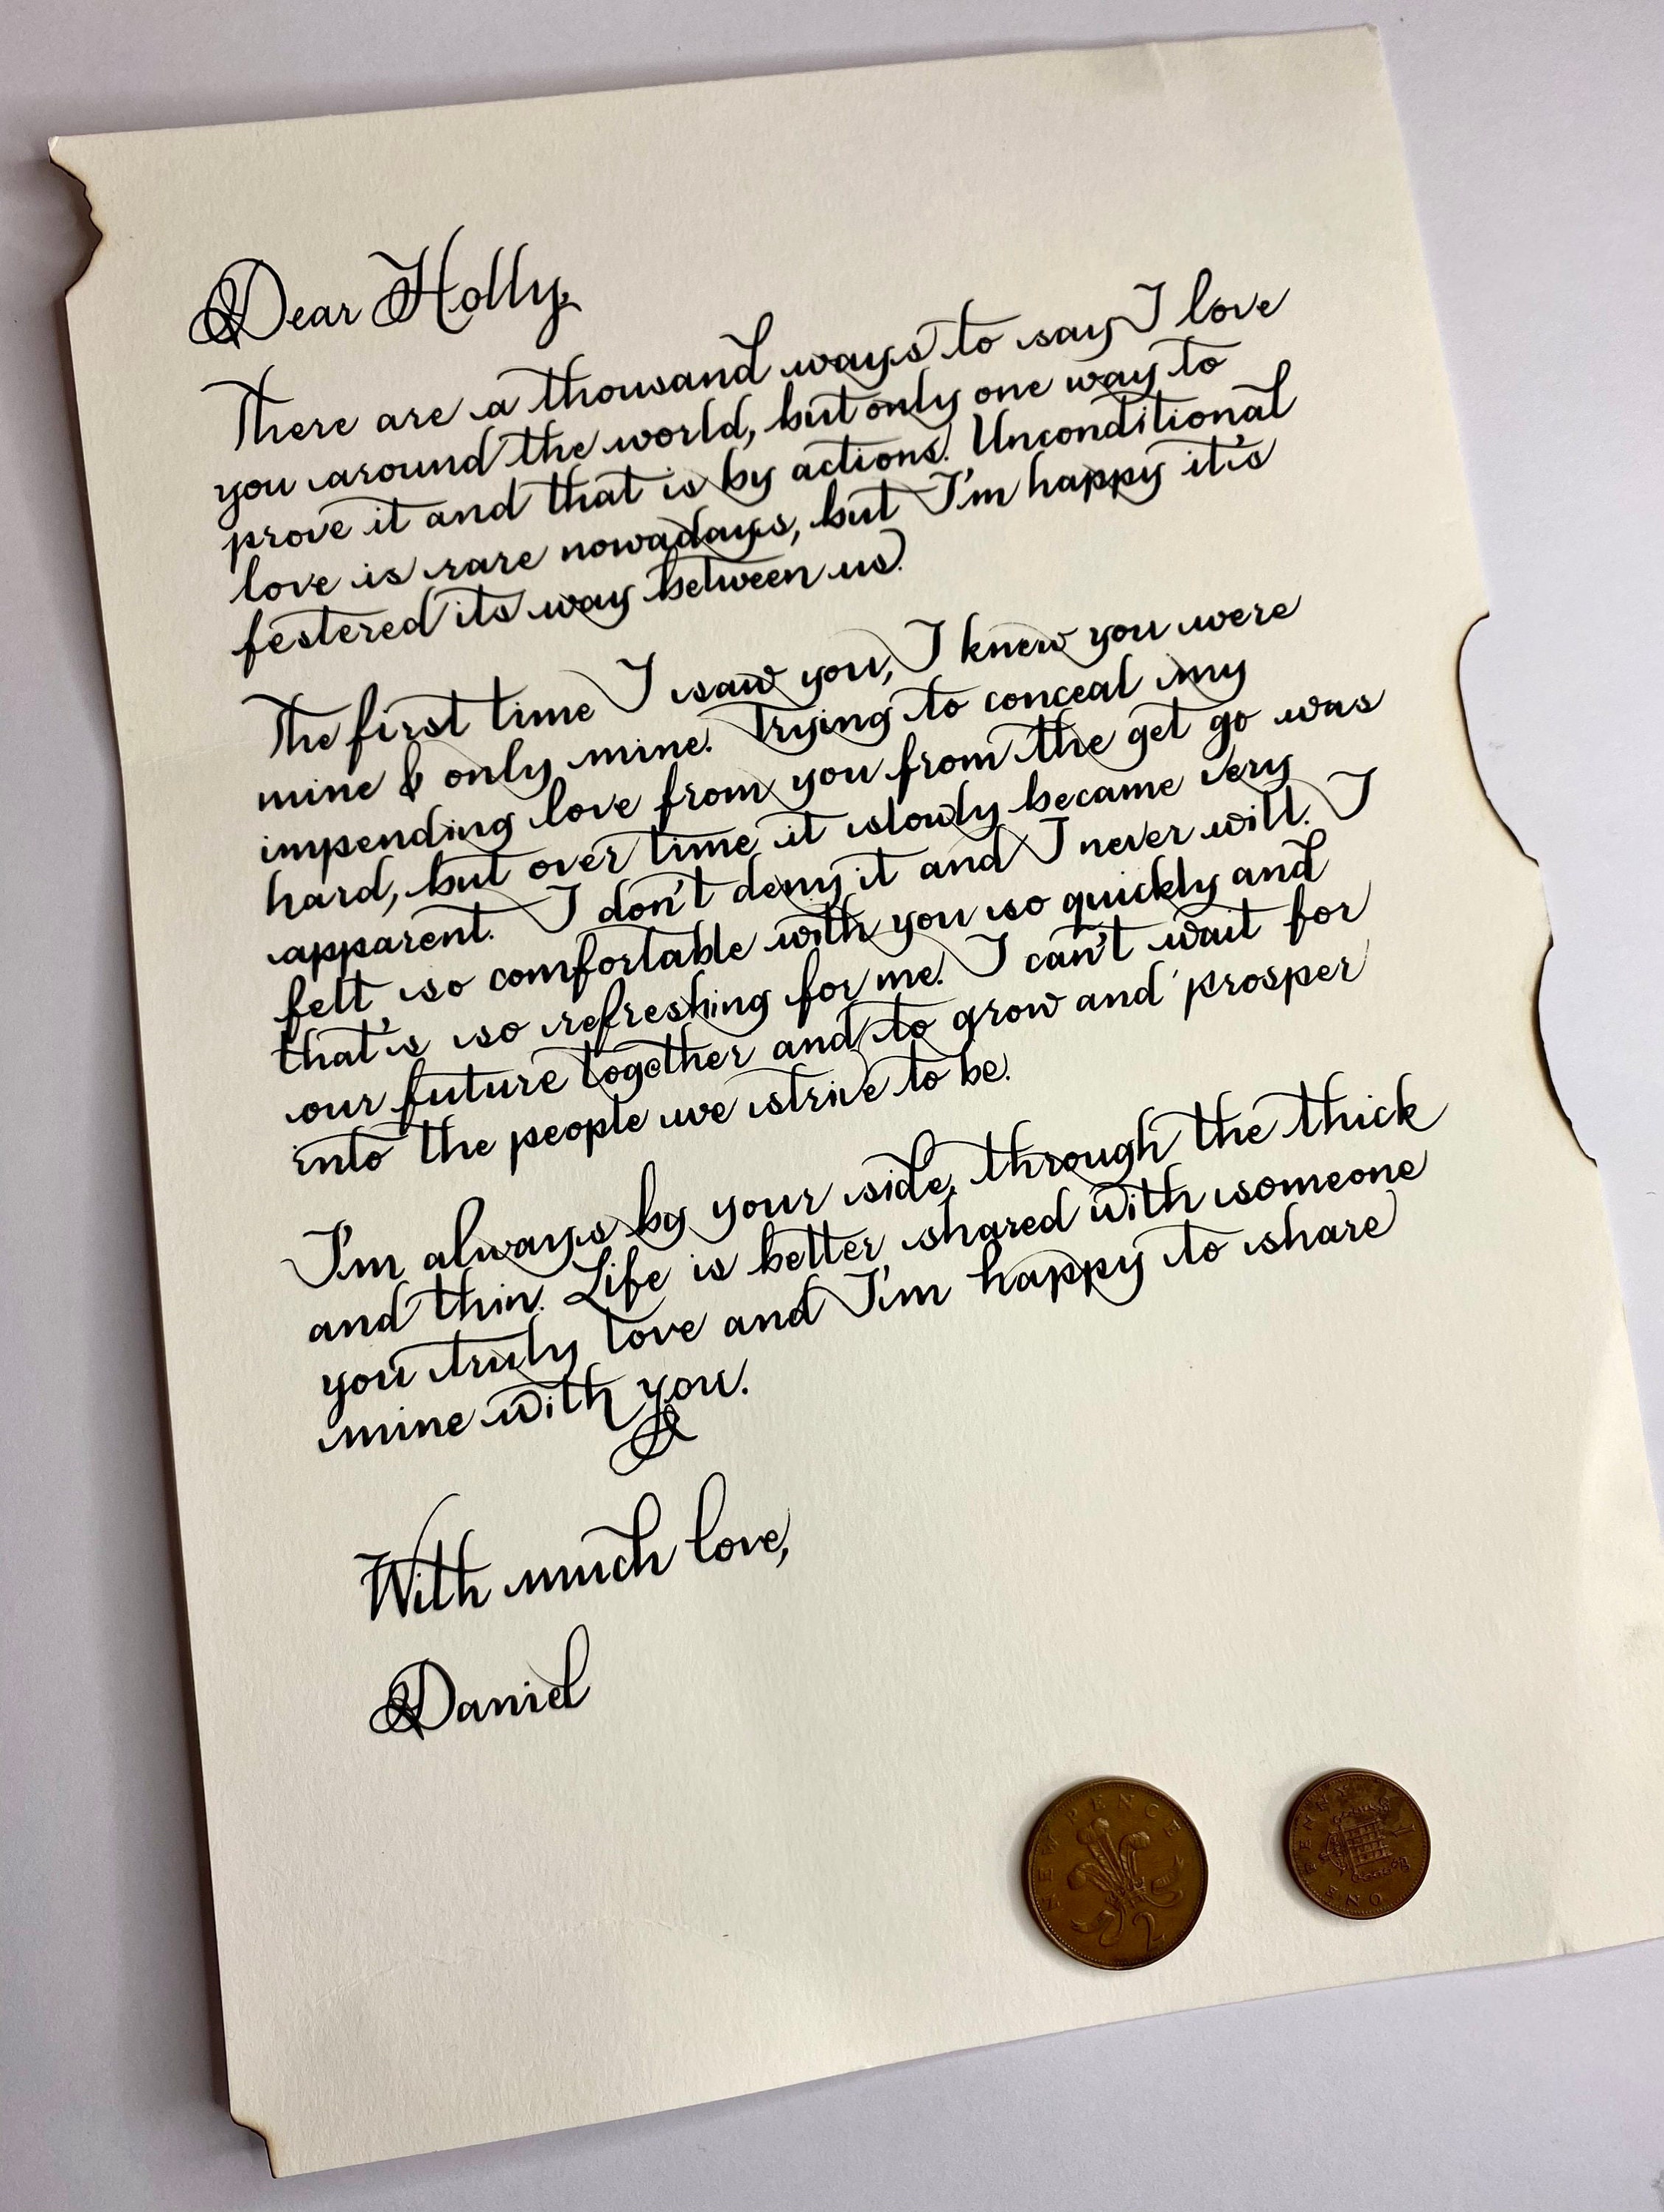 Dear Holly,
There are a thousand ways to say I love
you around the world, but only one way to
prove it and that is by actions. Unconditional
love is rare nowadays, but I'm happy it's
festered its way between us.
The first time I saw you, I knew you were
mine & only mine. Trying to conceal my
impending love from you from the get go was
hard, but over time it slowly became very
apparent. I don't deny it and I never will. I
felt so comfortable with you so quickly and
that's so refreshing for me. I can't wait for
our future together and to grow and prosper
into the people we strive to be.
I'm always by your side, through the thick
and thin. Life is better shared with someone
you truly love and I'm happy to share
mine with you.
With much love,
Daniel
NEW PENCE
2
ONE PENNY
1